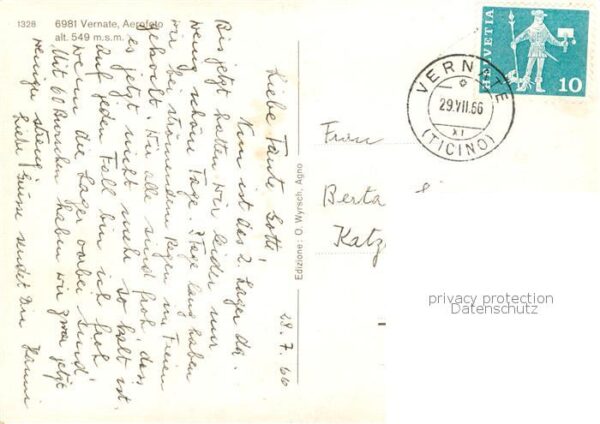 1328
6981 Vernate, Aerofoto
alt. 549 m.s.m.
28.7.66
Liebe Tante Gotti!
Nun ist das 2. Lager da.
Bis jetzt hatten wir leider nur
wenig schöne Tage. Tage lang haben
wir bei strömendem Regen im Freien
gekocht. Wir alle sind froh, dass
es jetzt nicht mehr so kalt ist.
Auf jeden Fall bin ich froh
wenn die Lager vorbei sind!
Mit 60 Buschen haben wir zwar jetzt
weniger streng
Liebe Grüsse sendet Dir Hanni
Edizione: O. Wyrsch, Agno
HELVETIA
10
VERNATE
29.VII.66
XI
(TICINO)
Frau
Berta
Katz
privacy protection
Datenschutz